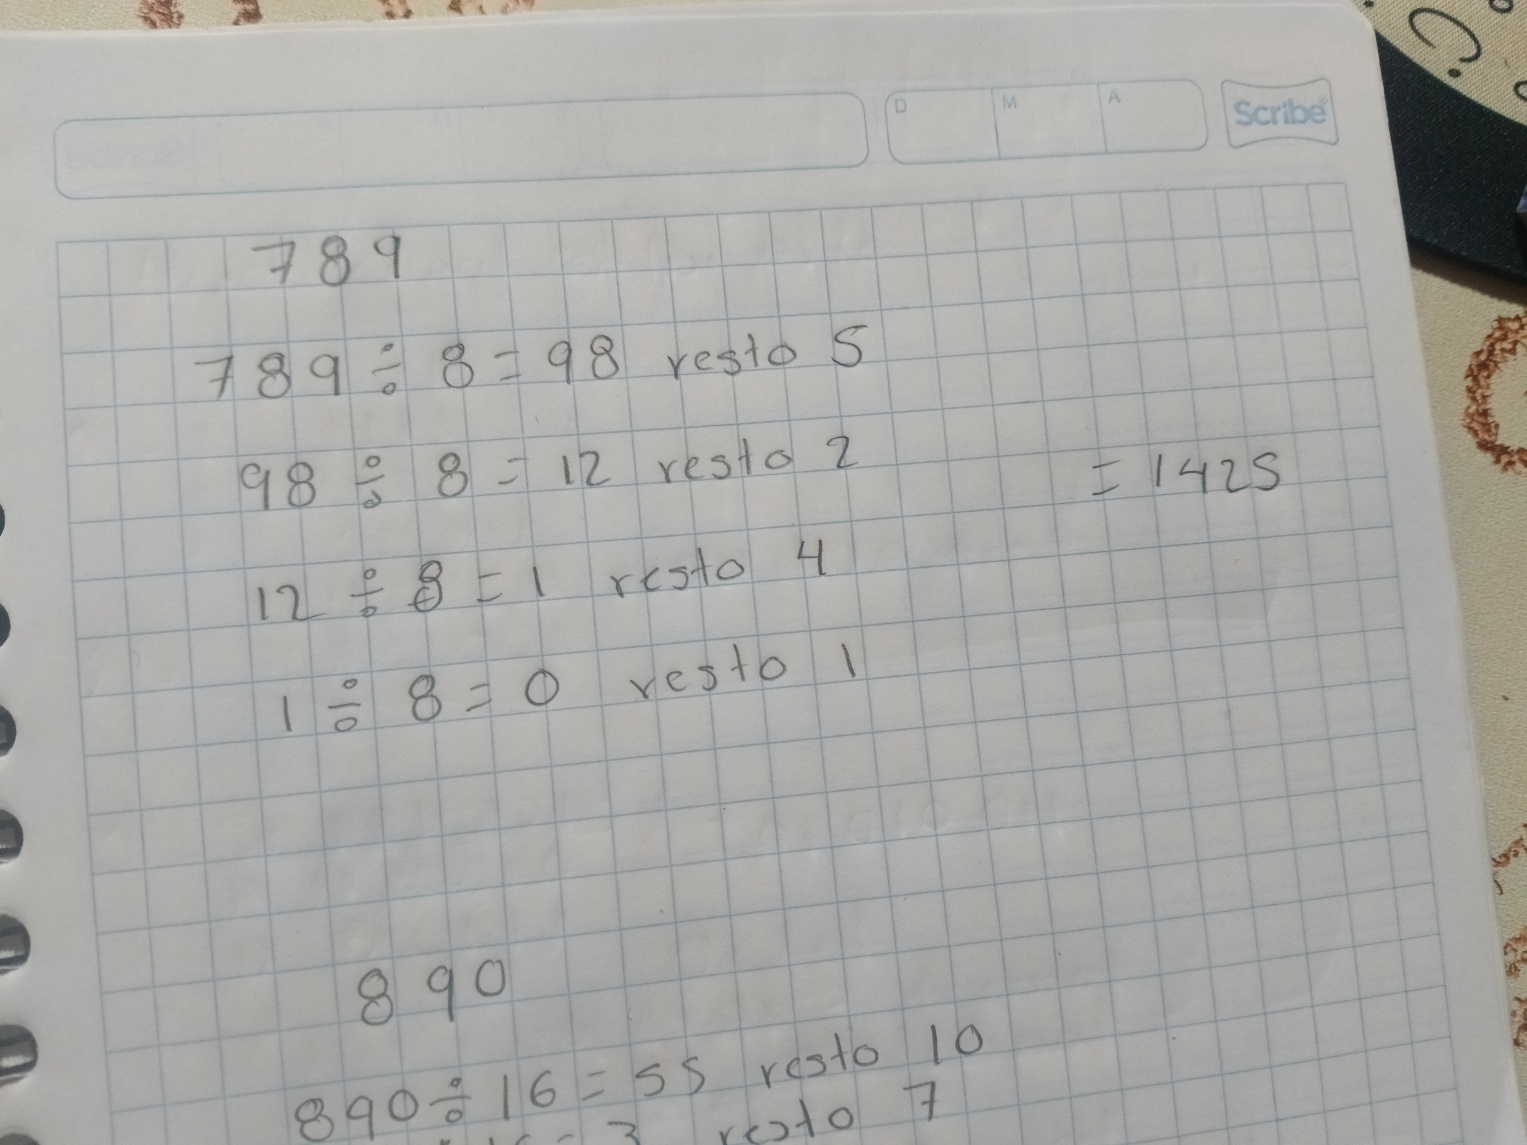 C.
D M A Scribe
789
789 ÷ 8 = 98 resto 5
98 ÷ 8 = 12 resto 2
= 1425
12 ÷ 8 = 1 resto 4
1 ÷ 8 = 0 resto 1
890
890 ÷ 16 = 55 resto 10
= 3 resto 7